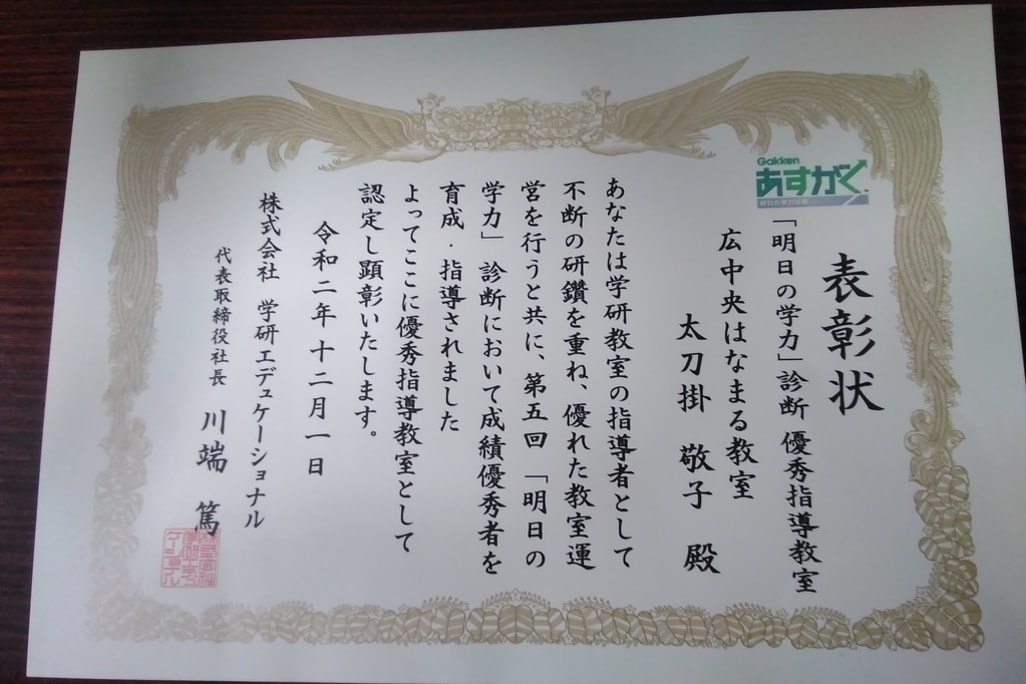 表彰状
Gakken
あすがく
「明日の学力」診断 優秀指導教室
広中央はなまる教室
太刀掛 敬子 殿
あなたは学研教室の指導者として
不断の研鑽を重ね、優れた教室運
営を行うと共に、第五回「明日の
学力」診断において成績優秀者を
育成・指導されました
よってここに優秀指導教室として
認定し顕彰いたします。
令和二年十二月一日
株式会社 学研エデュケーショナル
代表取締役社長 川端 篤